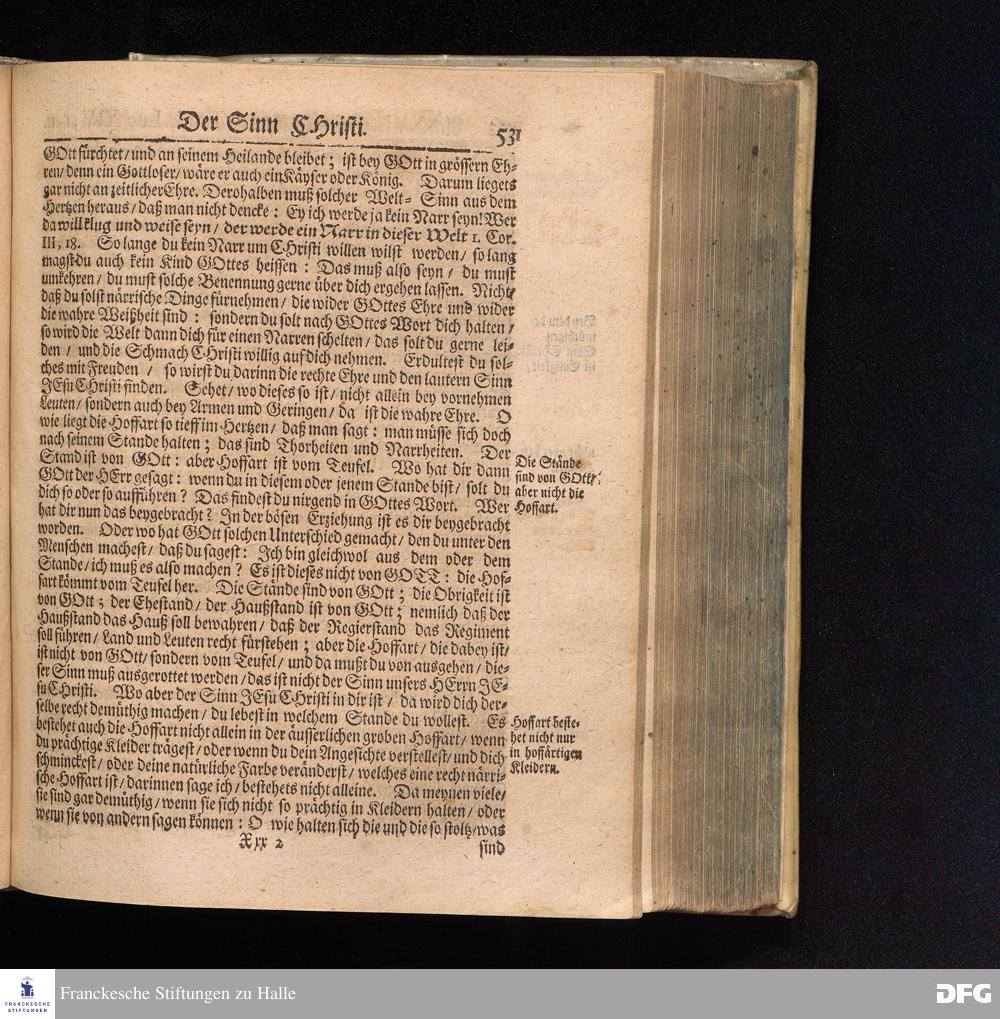 Der Sinn CHristi.
531
GOtt fürchtet/ und an seinem Heilande bleibet; ist bey GOtt in grössern Eh-
ren/ denn ein Gottloser/ wäre er auch ein Käyser oder König. Darum liegets
gar nicht an zeitlicher Ehre. Derohalben muß solcher Welt- Sinn aus dem
Hertzen heraus/ daß man nicht dencke: Ey ich werde ja kein Narr seyn! Wer
da will klug und weise seyn/ der werde ein Narr in dieser Welt 1. Cor.
III, 18. So lange du kein Narr um CHristi willen wilst werden/ so lang
magst du auch kein Kind GOttes heissen: Das muß also seyn/ du must
umkehren/ du must solche Benennung gerne über dich ergehen lassen. Nicht/
daß du solst närrische Dinge fürnehmen/ die wider GOttes Ehre und wider
die wahre Weißheit sind: sondern du solt nach GOttes Wort dich halten/
so wird die Welt dann dich für einen Narren schelten/ das solt du gerne lei-
den/ und die Schmach CHristi willig auf dich nehmen. Erdultest du sol-
ches mit Freuden/ so wirst du darinn die rechte Ehre und den lautern Sinn
JEsu CHristi finden. Sehet/ wo dieses so ist/ nicht allein bey vornehmen
Leuten/ sondern auch bey Armen und Geringen/ da ist die wahre Ehre. O
wie liegt die Hoffart so tieff im Hertzen/ daß man sagt: man müsse sich doch
nach seinem Stande halten; das sind Thorheiten und Narrheiten. Der
Stand ist von GOtt: aber Hoffart ist vom Teufel. Wo hat dir dann
GOtt der HErr gesagt: wenn du in diesem oder jenem Stande bist/ solt du
dich so oder so aufführen? Das findest du nirgend in GOttes Wort. Wer
hat dir nun das beygebracht? In der bösen Erziehung ist es dir beygebracht
worden. Oder wo hat GOtt solchen Unterschied gemacht/ den du unter den
Menschen machest/ daß du sagest: Ich bin gleichwol aus dem oder dem
Stande/ ich muß es also machen? Es ist dieses nicht von GOTT: die Hof-
fart kömmt vom Teufel her. Die Stände sind von GOtt; die Obrigkeit ist
von GOtt; der Ehestand/ der Haußstand ist von GOtt; nemlich daß der
Haußstand das Hauß soll bewahren/ daß der Regierstand das Regiment
soll führen/ Land und Leuten recht fürstehen; aber die Hoffart/ die dabey ist/
ist nicht von GOtt/ sondern vom Teufel/ und da mußt du von ausgehen/ die-
ser Sinn muß ausgerottet werden/ das ist nicht der Sinn unsers HErrn JE-
su CHristi. Wo aber der Sinn JEsu CHristi in dir ist/ da wird dich der-
selbe recht demüthig machen/ du lebest in welchem Stande du wollest. Es
bestehet auch die Hoffart nicht allein in der äusserlichen groben Hoffart/ wenn
du prächtige Kleider trägest/ oder wenn du dein Angesichte verstellest/ und dich
schminckest/ oder deine natürliche Farbe veränderst/ welches eine recht närri-
sche Hoffart ist/ darinnen sage ich/ bestehets nicht alleine. Da meynen viele/
sie sind gar demüthig/ wenn sie sich nicht so prächtig in Kleidern halten/ oder
wenn sie von andern sagen können: O wie halten sich die und die so stoltz/ was
Xxx 2
sind
Die Stände
sind von GOtt/
aber nicht die
Hoffart.
Hoffart beste-
het nicht nur
in hoffärtigen
Kleidern.
FRANCKESCHE
STIFTUNGEN
Franckesche Stiftungen zu Halle
DFG